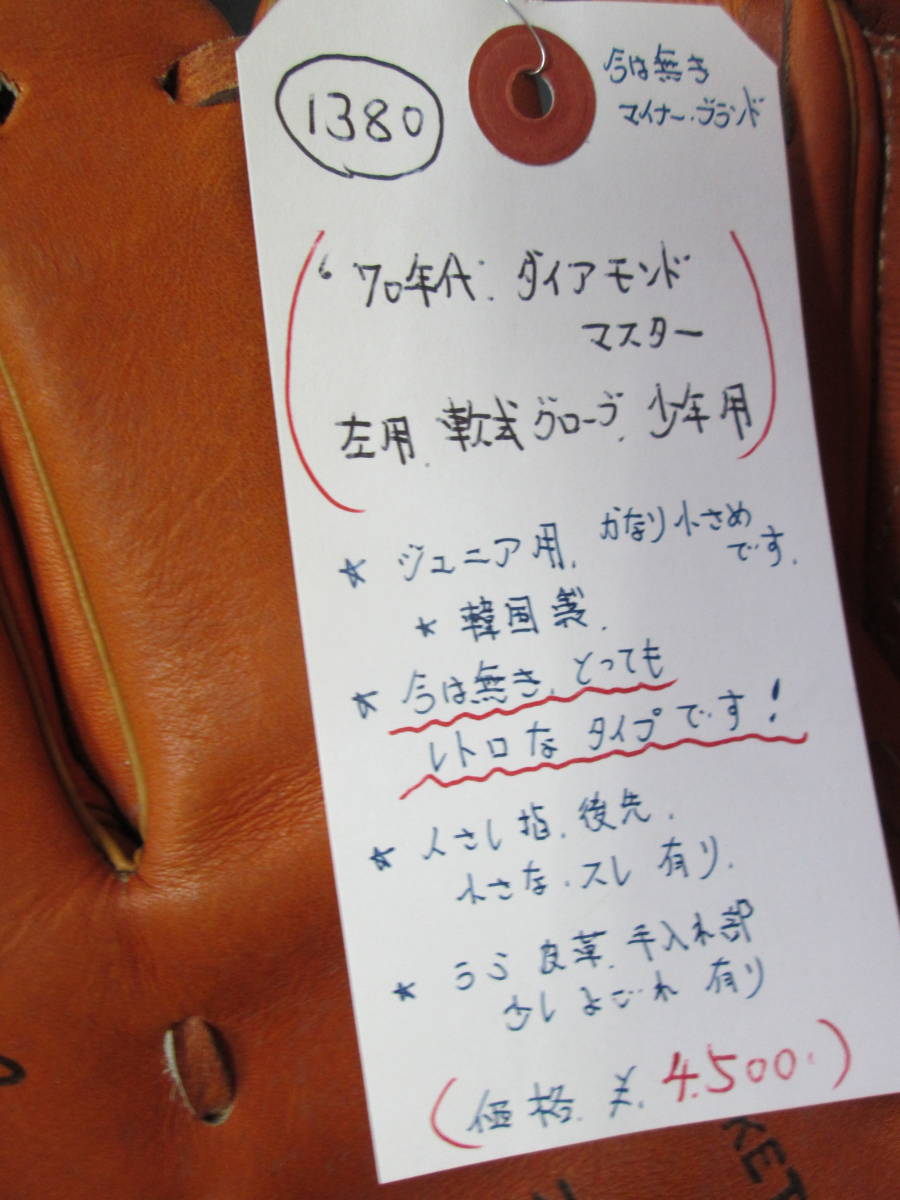 1380
今は無き
マイナー・ブランド
'70年代. ダイアモンド
マスター
左用. 軟式グローブ. 少年用
★ ジュニア用. かなり小さめ
です.
★ 韓国製.
★ 今は無き、とっても
レトロなタイプです!
★ 人さし指. 後先.
小さな・スレ 有り.
★ うら皮革. 手入れ部
少しよごれ 有り
(価格. ¥. 4.500.)
KET